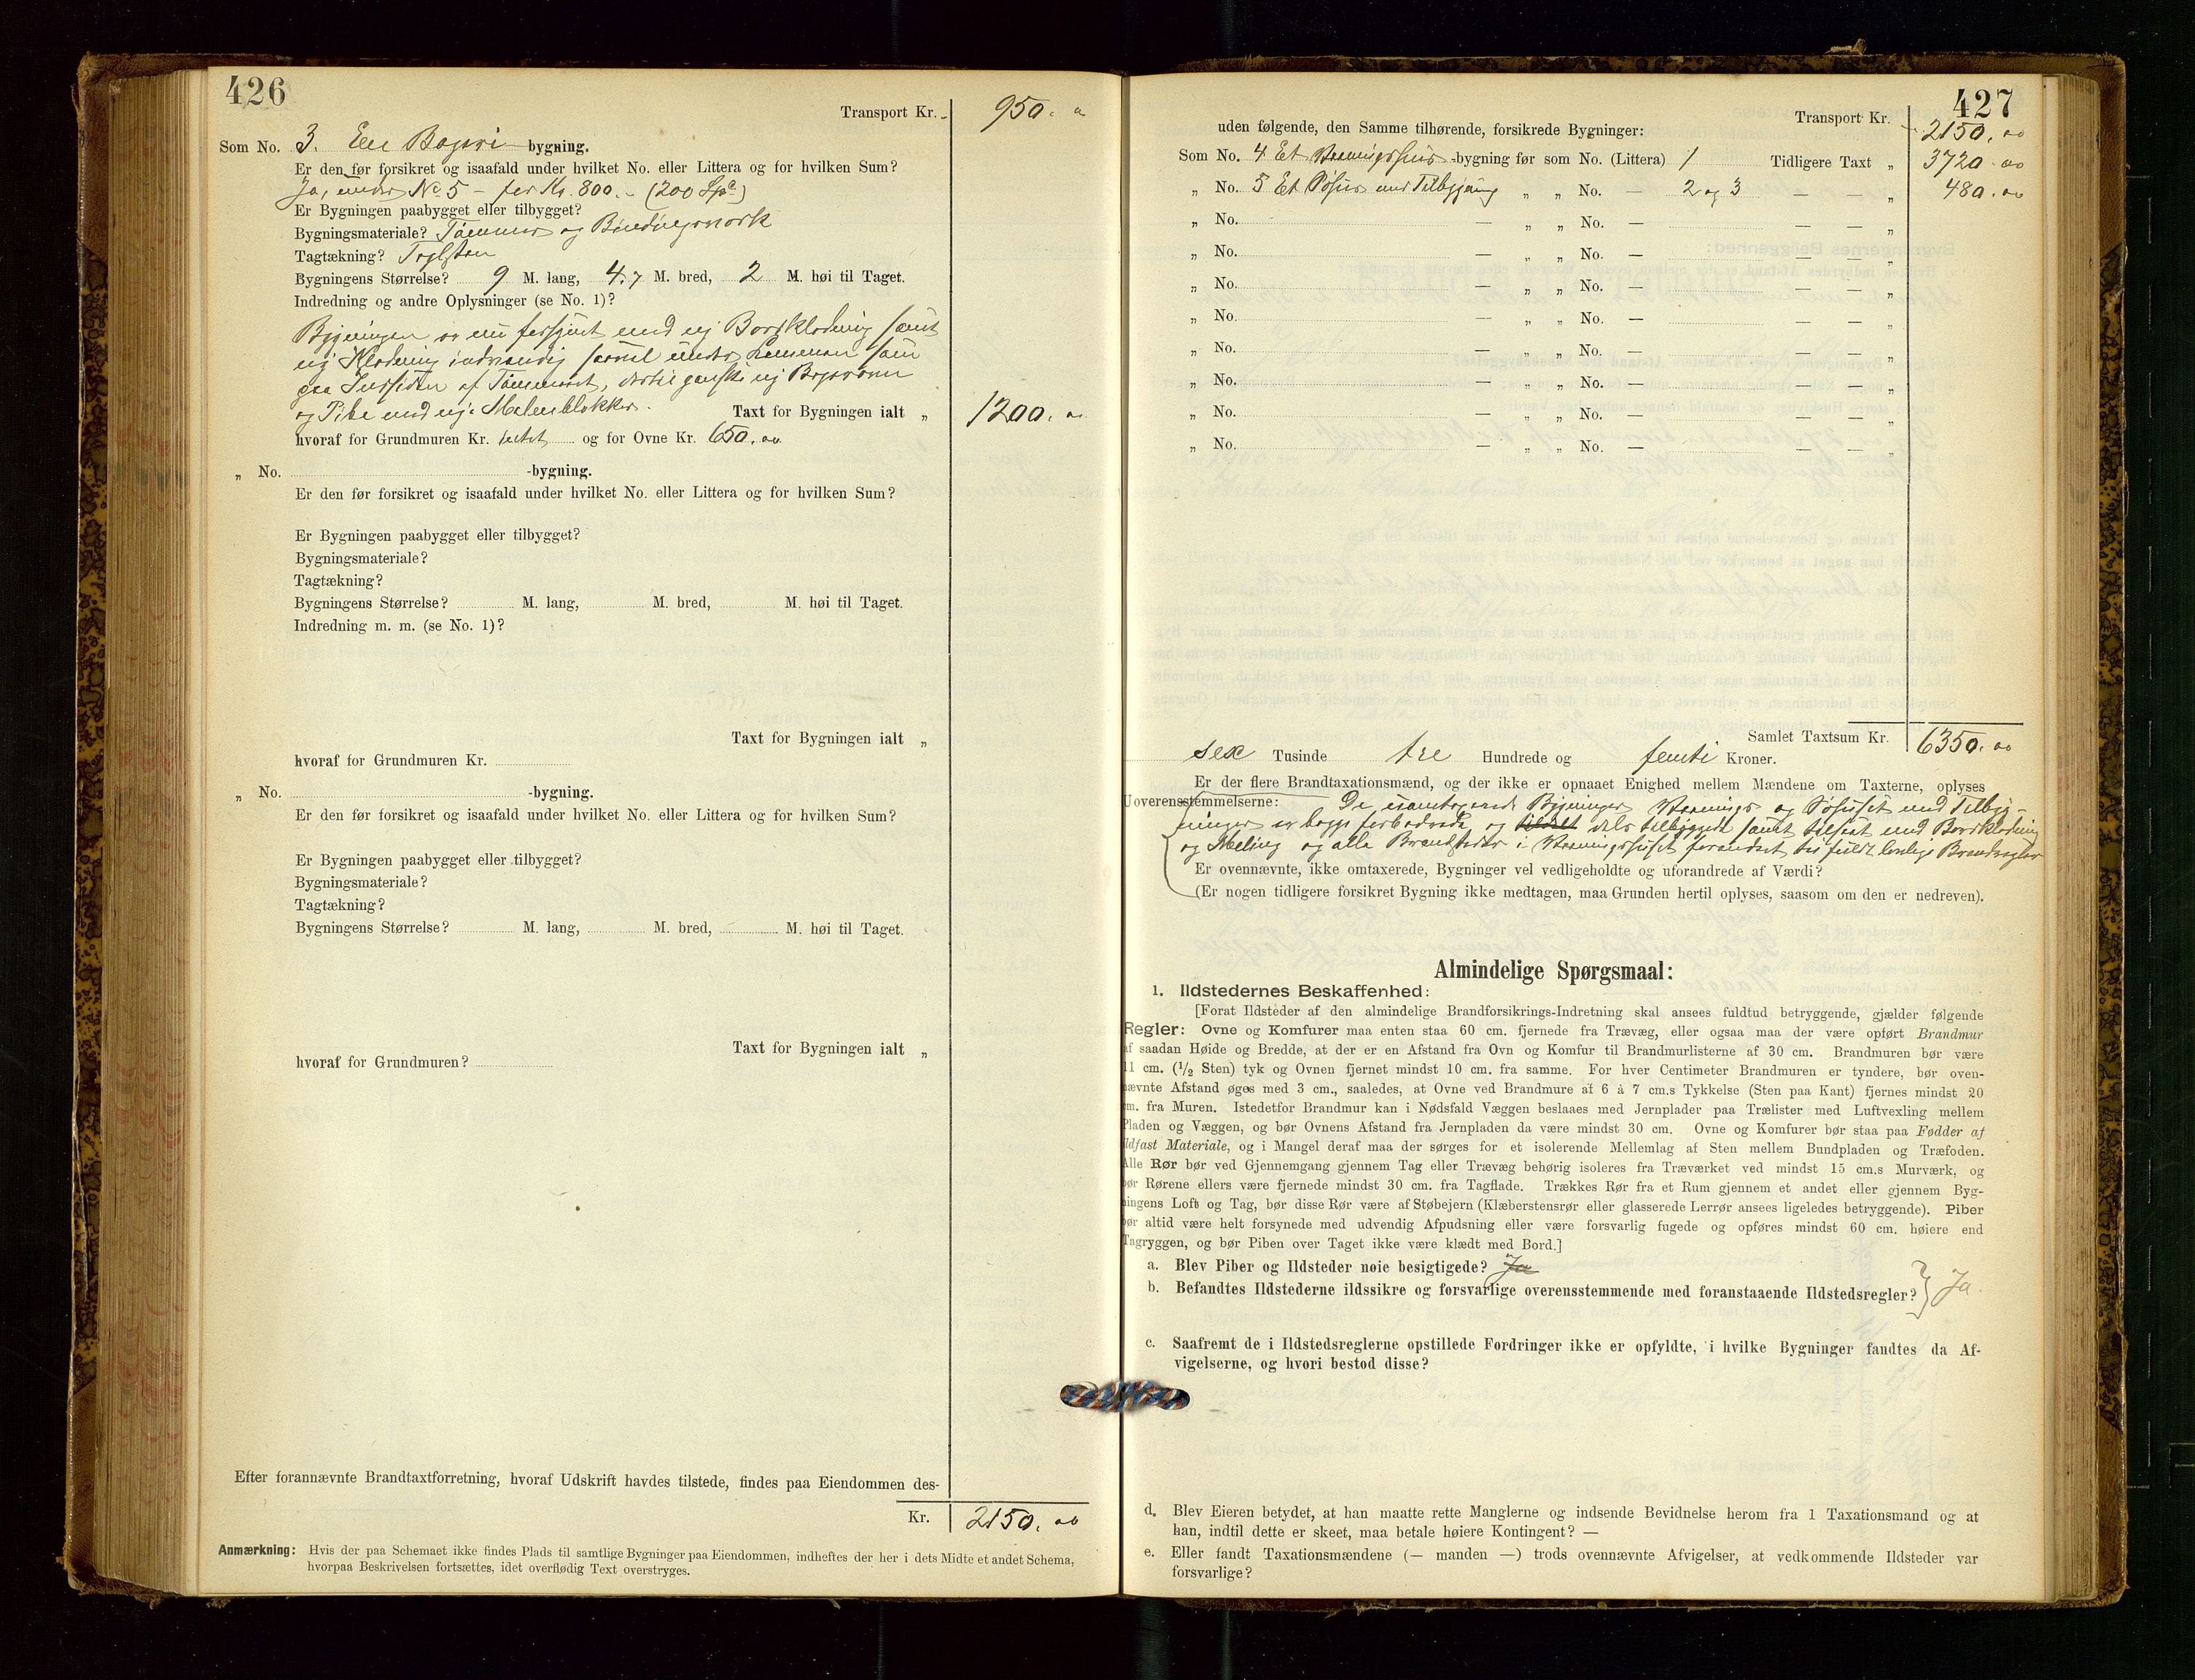 426
Transport Kr. 950.
Som No. 3. Een Bageri bygning.
Er den før forsikret og isaafald under hvilket No. eller Littera og for hvilken Sum?
Ja, under No 5 – for Kr. 800.– (200 Spd)
Er Bygningen paabygget eller tilbygget?
Bygningsmateriale? Tømmer og Bindingsværk
Tagtækning? Taglsten
Bygningens Størrelse? 9 M. lang, 4.7 M. bred, 2 M. høi til Taget.
Indredning og andre Oplysninger (se No. 1)?
Bygningen er nu forsynet med ny Bordklædning samt
ny Klædning indvendig under som
paa Indsiden af Tømmeret, dertil ganske ny Bagerovn
og Pibe med nye Taxt for Bygningen ialt „ 1200.
hvoraf for Grundmuren Kr. intet og for Ovne Kr. 650. oo
„ No. -bygning.
Er den før forsikret og isaafald under hvilket No. eller Littera og for hvilken Sum?
Er Bygningen paabygget eller tilbygget?
Bygningsmateriale?
Tagtækning?
Bygningens Størrelse? M. lang, M. bred, M. høi til Taget.
Indredning m. m. (se No. 1)?
Taxt for Bygningen ialt „
hvoraf for Grundmuren Kr.
„ No. -bygning.
Er den før forsikret og isaafald under hvilket No. eller Littera og for hvilken Sum?
Er Bygningen paabygget eller tilbygget?
Bygningsmateriale?
Tagtækning?
Bygningens Størrelse? M. lang, M. bred, M. høi til Taget.
Taxt for Bygningen ialt „
hvoraf for Grundmuren?
Efter forannævnte Brandtaxtforretning, hvoraf Udskrift havdes tilstede, findes paa Eiendommen des-
Kr. 2150. oo
Anmærkning: Hvis der paa Schemaet ikke findes Plads til samtlige Bygninger paa Eiendommen, indheftes der her i dets Midte et andet Schema,
hvorpaa Beskrivelsen fortsættes, idet overflødig Text overstryges.
427
Transport Kr. 2150. oo
uden følgende, den Samme tilhørende, forsikrede Bygninger:
Som No. 4 Et Vaaningshus -bygning før som No. (Littera) 1 Tidligere Taxt „ 3720. oo
„ No. 5 Et Søhus med Tilbygning „ „ No. — 2 og 3 — — „ 480. oo
„ No. — „ „ No. — — — „
„ No. — „ „ No. — — — „
„ No. — „ „ No. — — — „
„ No. — „ „ No. — — — „
„ No. — „ „ No. — — — „
„ No. — „ „ No. — — — „
„ No. — „ „ No. — — — „
„ No. — „ „ No. — — — „
Samlet Taxtsum Kr. 6350. oo
sex Tusinde tre Hundrede og femti Kroner.
Er der flere Brandtaxationsmænd, og der ikke er opnaaet Enighed mellem Mændene om Taxterne, oplyses
Uoverensstemmelserne: De Bygninger, Vaanings og Søhuset med Tilbyg-
ninger er begge forbedrede og dels tilbyggede samt med Bordklædning
og Maling og alle Brandsteder i Vaaningshuset forandret til fuldt lovlige
Er ovennævnte, ikke omtaxerede, Bygninger vel vedligeholdte og uforandrede af Værdi?
(Er nogen tidligere forsikret Bygning ikke medtagen, maa Grunden hertil oplyses, saasom om den er nedreven).
Almindelige Spørgsmaal:
1. Ildstedernes Beskaffenhed:
[Forat Ildsteder af den almindelige Brandforsikrings-Indretning skal ansees fuldtud betryggende, gjælder følgende
Regler: Ovne og Komfurer maa enten staa 60 cm. fjernede fra Trævæg, eller ogsaa maa der være opført Brandmur
af saadan Høide og Bredde, at der er en Afstand fra Ovn og Komfur til Brandmurlisterne af 30 cm. Brandmuren bør være
11 cm. (1/2 Sten) tyk og Ovnen fjernet mindst 10 cm. fra samme. For hver Centimeter Brandmuren er tyndere, bør oven-
nævnte Afstand øges med 3 cm., saaledes, at Ovne ved Brandmure af 6 à 7 cm.s Tykkelse (Sten paa Kant) fjernes mindst 20
cm. fra Muren. Istedetfor Brandmur kan i Nødsfald Væggen beslaaes med Jernplader paa Trælister med Luftvexling mellem
Pladen og Væggen, og bør Ovnens Afstand fra Jernpladen da være mindst 30 cm. Ovne og Komfurer bør staa paa Fødder af
ildfast Materiale, og i Mangel deraf maa der sørges for et isolerende Mellemlag af Sten mellem Bundpladen og Træfoden.
Alle Rør bør ved Gjennemgang gjennem Tag eller Trævæg behørig isoleres fra Træværket ved mindst 15 cm.s Murværk, og
bør Rørene ellers være fjernede mindst 30 cm. fra Tagflade. Trækkes Rør fra et Rum gjennem et andet eller gjennem Byg-
ningens Loft og Tag, bør disse Rør være af Støbejern (Klæberstensrør eller glasserede Lerrør ansees ligeledes betryggende). Piber
bør altid være helt forsynede med udvendig Afpudsning eller være forsvarlig fugede og opføres mindst 60 cm. høiere end
Tagryggen, og bør Piben over Taget ikke være klædt med Bord.]
a. Blev Piber og Ildsteder nøie besigtigede? Ja
b. Befandtes Ildstederne ildssikre og forsvarlige overensstemmende med foranstaaende Ildstedsregler? } Ja.
c. Saafremt de i Ildstedsreglerne opstillede Fordringer ikke er opfyldte, i hvilke Bygninger fandtes da Af-
vigelserne, og hvori bestod disse?
d. Blev Eieren betydet, at han maatte rette Manglerne og indsende Bevidnelse herom fra 1 Taxationsmand og at
han, indtil dette er skeet, maa betale høiere Kontingent? —
e. Eller fandt Taxationsmændene (— manden —) trods ovennævnte Afvigelser, at vedkommende Ildsteder var
forsvarlige?